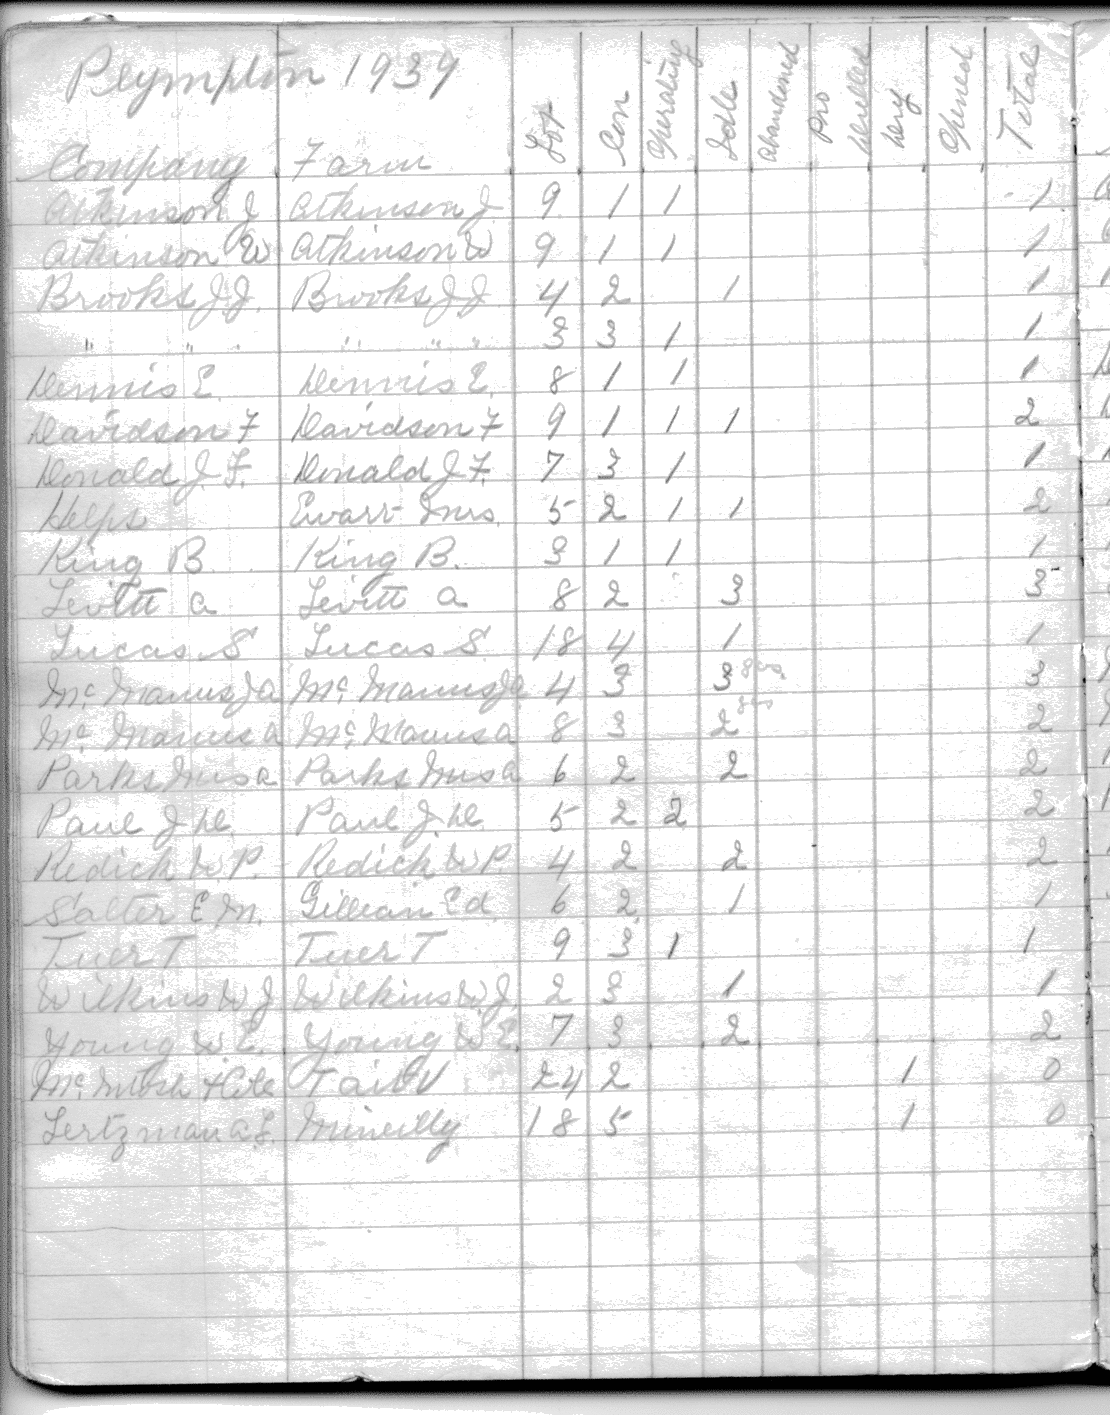 Plympton 1939
Company Farm Lot Con Operating Idle Abandoned Pro Drilled Dry Opened Total
Atkinson J Atkinson J 9 1 1 1
Atkinson W Atkinson W 9 1 1 1
Brooks J.J. Brooks J J 4 2 1 1
" " " " " " 3 3 1 1
Dennis E. Dennis E. 8 1 1 1
Davidson F Davidson F 9 1 1 1 2
Donald J. F. Donald J F. 7 3 1 1
Helps Ewart Mrs. 5 2 1 1 2
King B King B. 3 1 1 1
Levitt A Levitt A 8 2 3 3
Lucas S Lucas S. 18 4 1 1
McManus J A McManus J A 4 3 3 gas 3
McManus A McManus A 8 3 2 gas 2
Parks Mrs A Parks Mrs A 6 2 2 2
Paul J. D. Paul J. D. 5 2 2 2
Redick W. P. Redick W P. 4 2 2 2
Salter E. M. Ed. 6 2 1 1
Tuer T Tuer T 9 3 1 1
Wilkins W J Wilkins W. J. 2 3 1 1
Young W. E. Young W E. 7 3 2 2
24 2 1 0
18 5 1 0